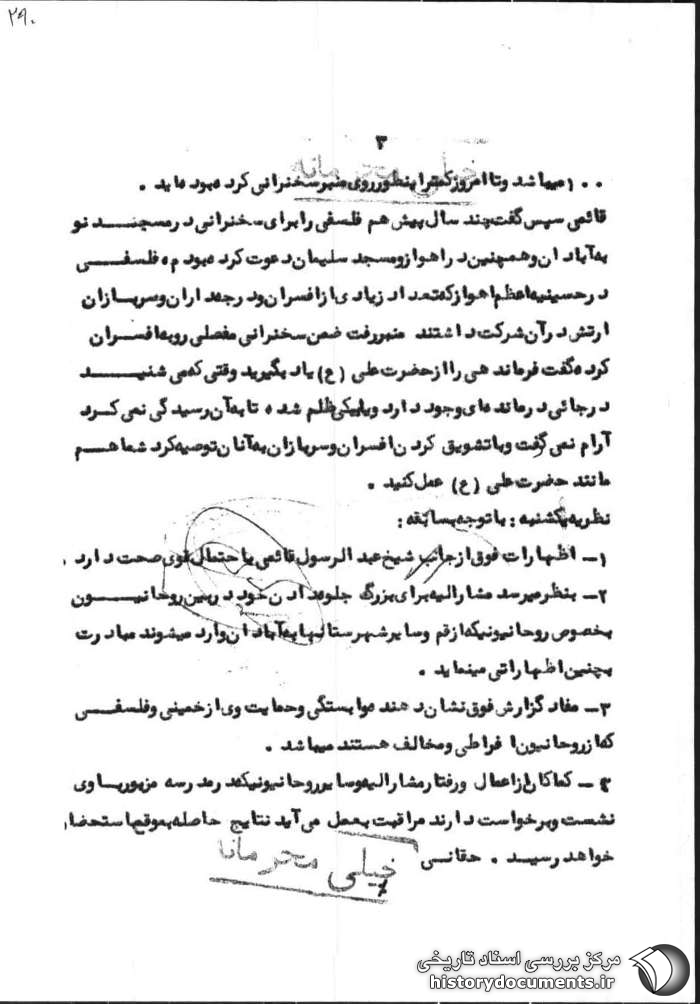 ۲۹۰
۳
خیلی محرمانه
۱۰۰ میباشد وتا امروز کمتر اینطور روی منبر سخنرانی کرده بوده اید .
قائمی سپس گفت چند سال پیش هم فلسفی را برای سخنرانی در مسجد نو
به آبادان وهمچنین در اهواز ومسجد سلیمان دعوت کرده بودم که فلسفی
در حسینیه اعظم اهواز که تعداد زیادی از افسران ودرجه داران وسربازان
ارتش در آن شرکت داشتند منبر رفت ضمن سخنرانی مفصلی رو به افسران
کرده گفت فرماندهی را از حضرت علی (ع) یاد بگیرید وقتی که می شنید
در جائی درمانده ای وجود دارد ویا بیکی ظلم شده تا به آن رسیدگی نمی کرد
آرام نمی گفت وبا تشویق کردن افسران وسربازان به آنان توصیه کرد شما هم
مانند حضرت علی (ع) عمل کنید .
نظریه یکشنبه : با توجه بسابقه :
۱- اظهارات فوق از جانب شیخ عبد الرسول قائمی با احتمال قوی صحت دارد .
۲- بنظر میرسد مشارالیه برای بزرگ جلوه دادن خود در بین روحانیون
بخصوص روحانیونیکه از قم وسایر شهرستانها به آبادان وارد میشوند مبادرت
بچنین اظهاراتی مینماید .
۳- مفاد گزارش فوق نشان دهنده وابستگی وحمایت وی از خمینی وفلسفی
که از روحانیون افراطی ومخالف هستند میباشد .
۴- کماکان از اعمال ورفتار مشارالیه وسایر روحانیونیکه در مدرسه مزبور با وی
نشست وبرخواست دارند مراقبت بعمل می آید نتایج حاصله بموقع باستحضار
خواهد رسید . حقانی
خیلی محرمانه
مرکز بررسی اسناد تاریخی
historydocuments.ir